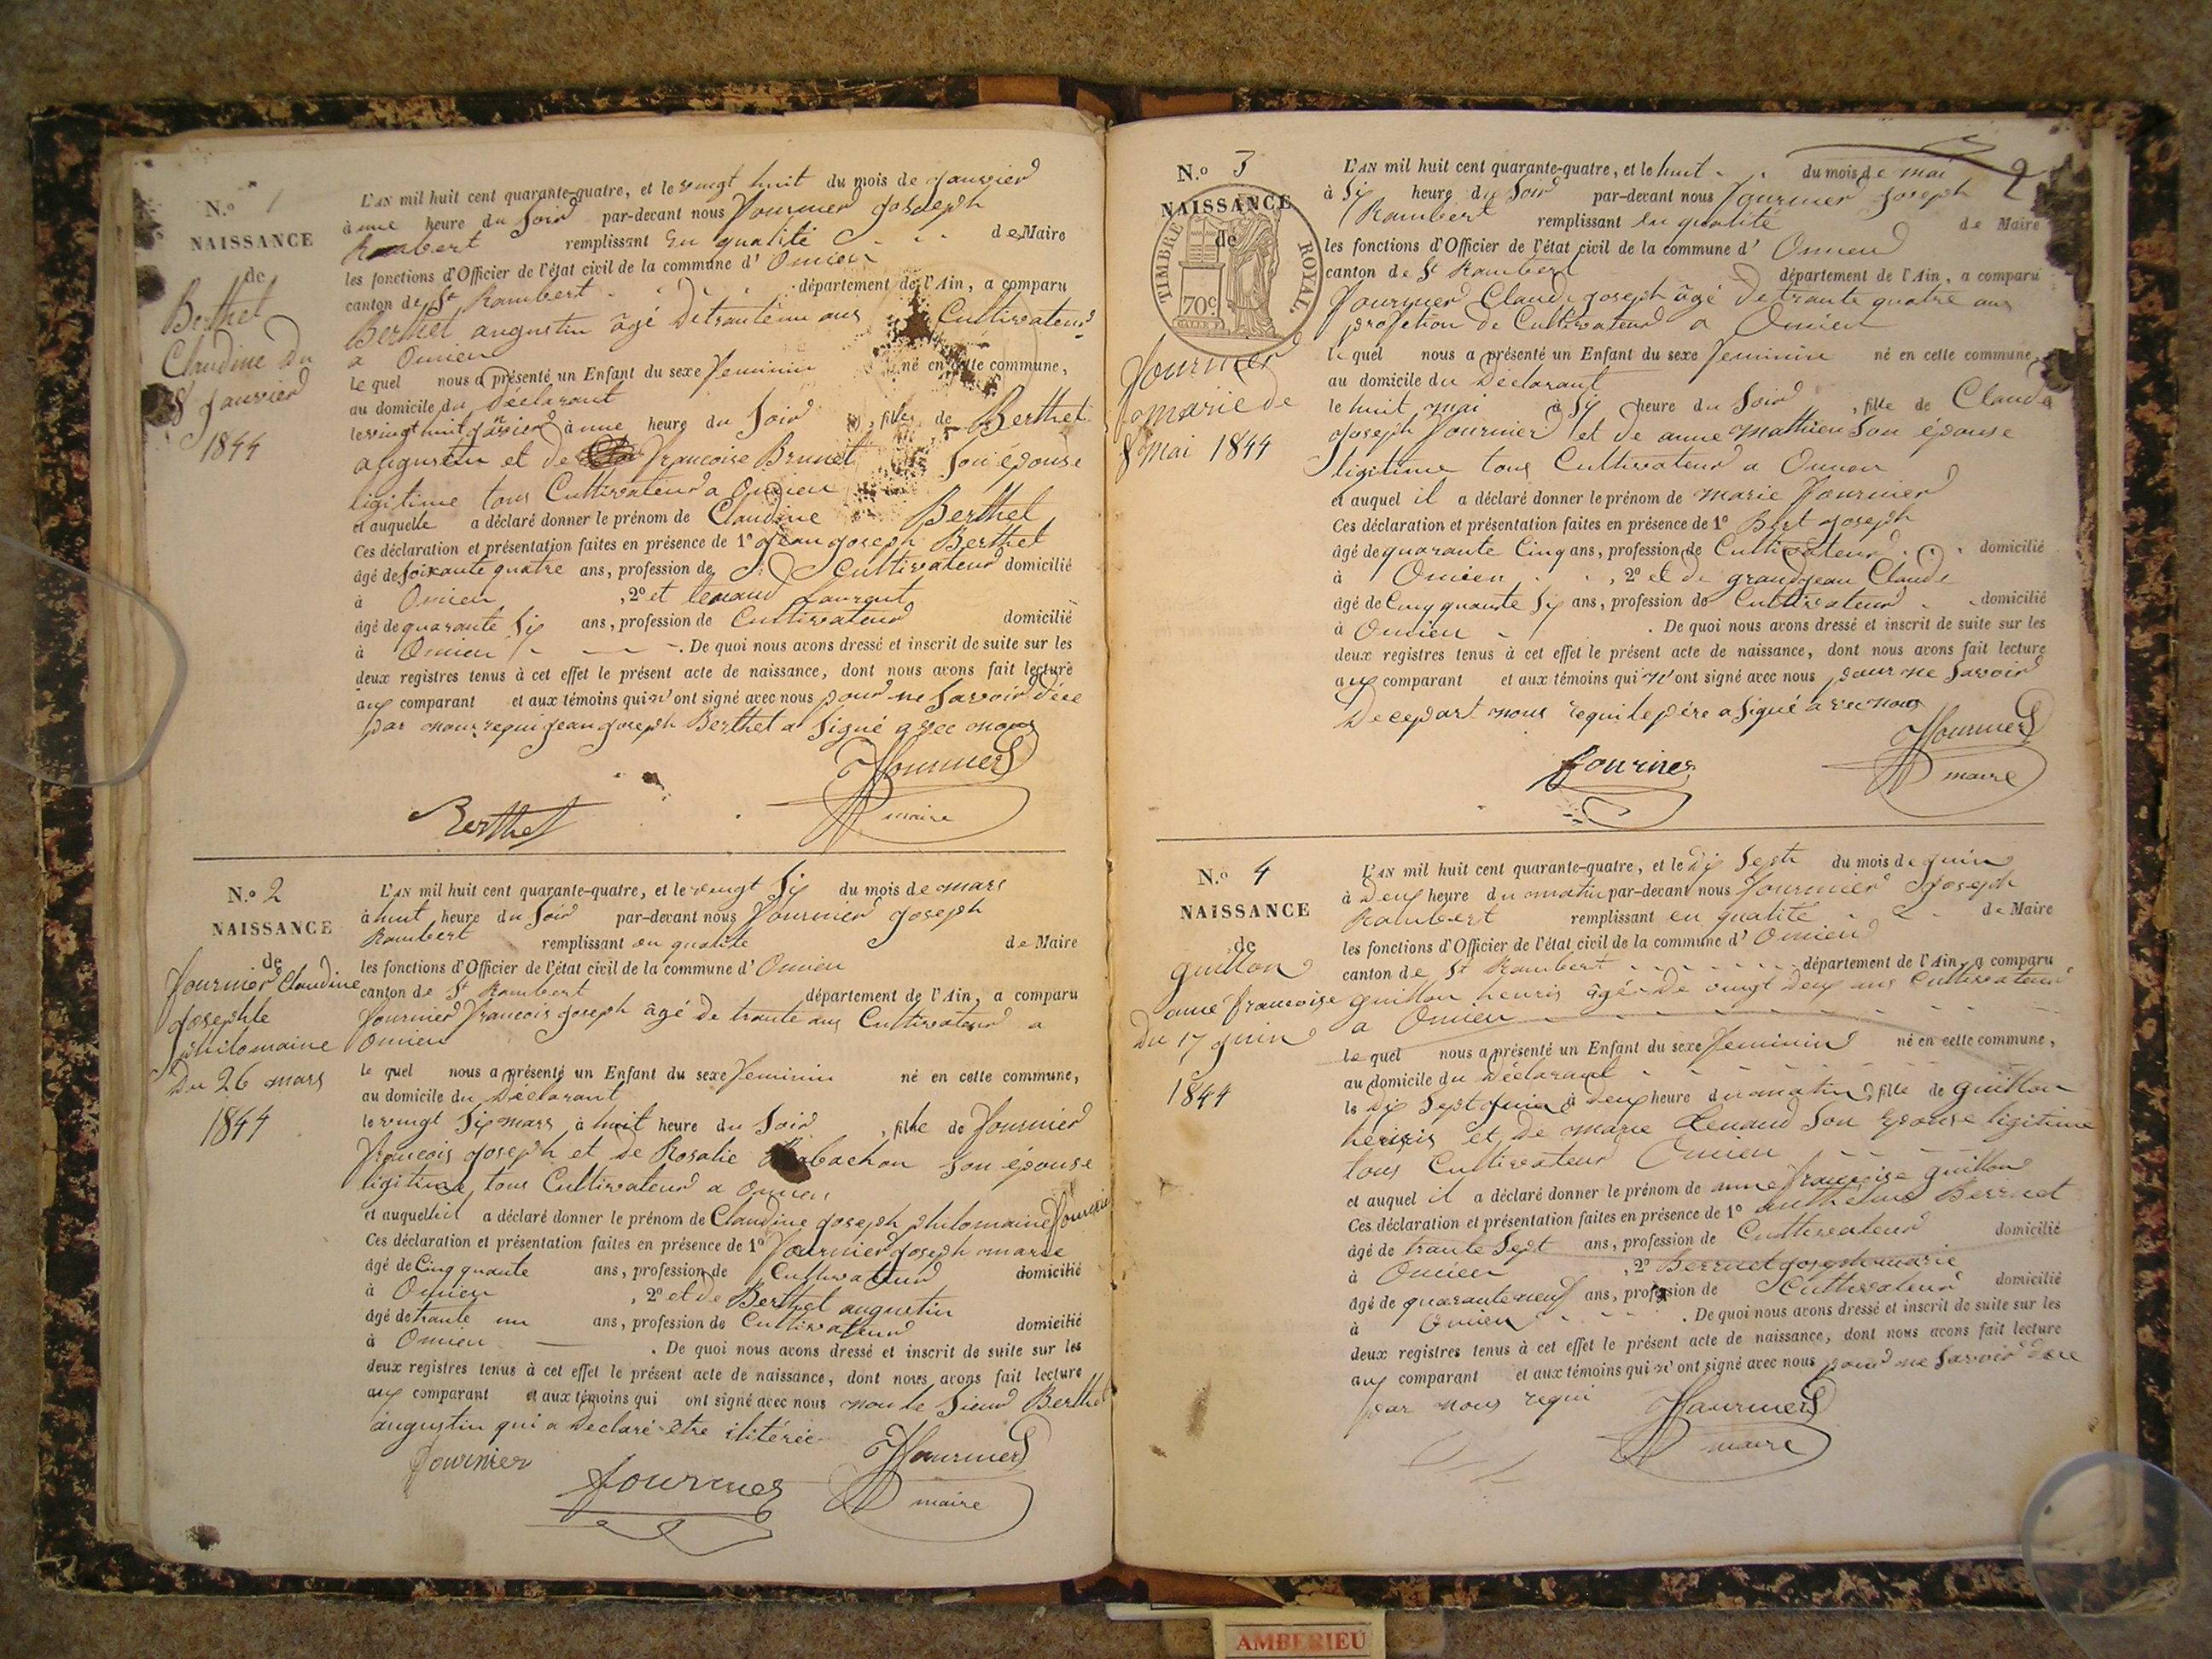 N.o 1
NAISSANCE
de
Berthet
Claudine du
28 janvier
1844
L'AN mil huit cent quarante-quatre, et le vingt huit du mois de janvier
à une heure du Soir par-devant nous fournier joseph
Rambert remplissant en qualité de Maire
les fonctions d'Officier de l'état civil de la commune d' Oncieu
canton de St Rambert département de l'Ain, a comparu
Berthet augustin âgé de trante un ans Cultivateur
a Oncieu
le quel nous a présenté un Enfant du sexe feminin né en cette commune,
au domicile du Déclarant
le vingt huit janvier à une heure du Soir , fille de Berthet
augustin et de francoise Brunet Son épouse
ligitime tous Cultivateur a Oncieu
et auquelle a déclaré donner le prénom de Claudine Berthet
Ces déclaration et présentation faites en présence de 1o jean joseph Berthet
âgé de Soixante quatre ans, profession de Cultivateur domicilié
à Oncieu , 2o et tenand Laurent
âgé de quarante Six ans, profession de Cultivateur domicilié
à Oncieu . De quoi nous avons dressé et inscrit de suite sur les
deux registres tenus à cet effet le présent acte de naissance, dont nous avons fait lecture
aux comparant et aux témoins qui n'ont signé avec nous pour ne Savoir dece
par nous requi jean joseph Berthet a Signé avec nous
Berthet
JFournier
maire
N.o 2
NAISSANCE
de
fournier Claudine
josephte
philomaine
Du 26 mars
1844
L'AN mil huit cent quarante-quatre, et le vengt Six du mois de mars
à huit heure du Soir par-devant nous fournier joseph
Rambert remplissant en qualité de Maire
les fonctions d'Officier de l'état civil de la commune d' Oncieu
canton de St Rambert département de l'Ain, a comparu
fournier francois joseph âgé de trante ans Cultivateur a
Oncieu
le quel nous a présenté un Enfant du sexe feminin né en cette commune,
au domicile du Déclarant
le vingt Six mars à huit heure du Soir , fille de fournier
francois joseph et de Rosalie Rabachon son épouse
ligitime tous Cultivateur a Oncieu
et auquelle il a déclaré donner le prénom de Claudine joseph philomaine fournier
Ces déclaration et présentation faites en présence de 1o fournier joseph marie
âgé de Cinq quante ans, profession de Cultivateur domicilié
à Oncieu , 2o et de Berthet augustin
âgé de trante un ans, profession de Cultivateur domicilié
à Oncieu . De quoi nous avons dressé et inscrit de suite sur les
deux registres tenus à cet effet le présent acte de naissance, dont nous avons fait lecture
aux comparant et aux témoins qui ont signé avec nous non le Sieur Berthet
augustin qui a Declaré être ilitérée
fournier
fournier
JFournier
maire
2
N.o 3
NAISSANCE
de
TIMBRE ROYAL.
70c
fournier
marie de
8 mai 1844
L'AN mil huit cent quarante-quatre, et le huit du mois de mai
à Six heure du Soir par-devant nous fournier joseph
Rambert remplissant en qualité de Maire
les fonctions d'Officier de l'état civil de la commune d' Oncieu
canton de St Rambert département de l'Ain, a comparu
fournier Claude joseph âgé de trante quatre ans
profetion de Cultivateur a Oncieu
le quel nous a présenté un Enfant du sexe feminin né en cette commune,
au domicile du Déclarant
le huit mai à Six heure du Soir , fille de Claude
joseph fournier et de anne mathieu Son épouse
ligitime tous Cultivateur a Oncieu
et auquel il a déclaré donner le prénom de marie fournier
Ces déclaration et présentation faites en présence de 1o Birt joseph
âgé de quarante Cinq ans, profession de Cultivateur domicilié
à Oncieu , 2o et de grandjean Claude
âgé de Cinq quante Six ans, profession de Cultivateur domicilié
à Oncieu . De quoi nous avons dressé et inscrit de suite sur les
deux registres tenus à cet effet le présent acte de naissance, dont nous avons fait lecture
aux comparant et aux témoins qui n'ont signé avec nous pour ne Savoir
De ce part nous requi le pére a Signé avec nous
fournier
JFournier
maire
N.o 4
NAISSANCE
de
guillon
anne francoise
Du 17 juin
1844
L'AN mil huit cent quarante-quatre, et le dix Sept du mois de juin
à Deux heure du matin par-devant nous fournier joseph
Rambert remplissant en qualité de Maire
les fonctions d'Officier de l'état civil de la commune d' Oncieu
canton de St Rambert département de l'Ain, a comparu
guillon henris âgé De vingt Deux ans Cultivateur
a Oncieu
le quel nous a présenté un Enfant du sexe feminin né en cette commune,
au domicile du Déclarant
le dix Sept juin à deux heure du matin , fille de guillon
henris et de marie tenand Son Epouse ligitime
tous Cultivateur Oncieu
et auquel il a déclaré donner le prénom de anne françoise guillon
Ces déclaration et présentation faites en présence de 1o anthelme Berrnet
âgé de trante Sept ans, profession de Cultivateur domicilié
à Oncieu , 2o Berrnet joseph marie
âgé de quarante neuf ans, profession de Cultivateur domicilié
à Oncieu . De quoi nous avons dressé et inscrit de suite sur les
deux registres tenus à cet effet le présent acte de naissance, dont nous avons fait lecture
aux comparant et aux témoins qui n'ont signé avec nous pour ne Savoir dece
par nous requi
JFournier
maire
AMBERIEU